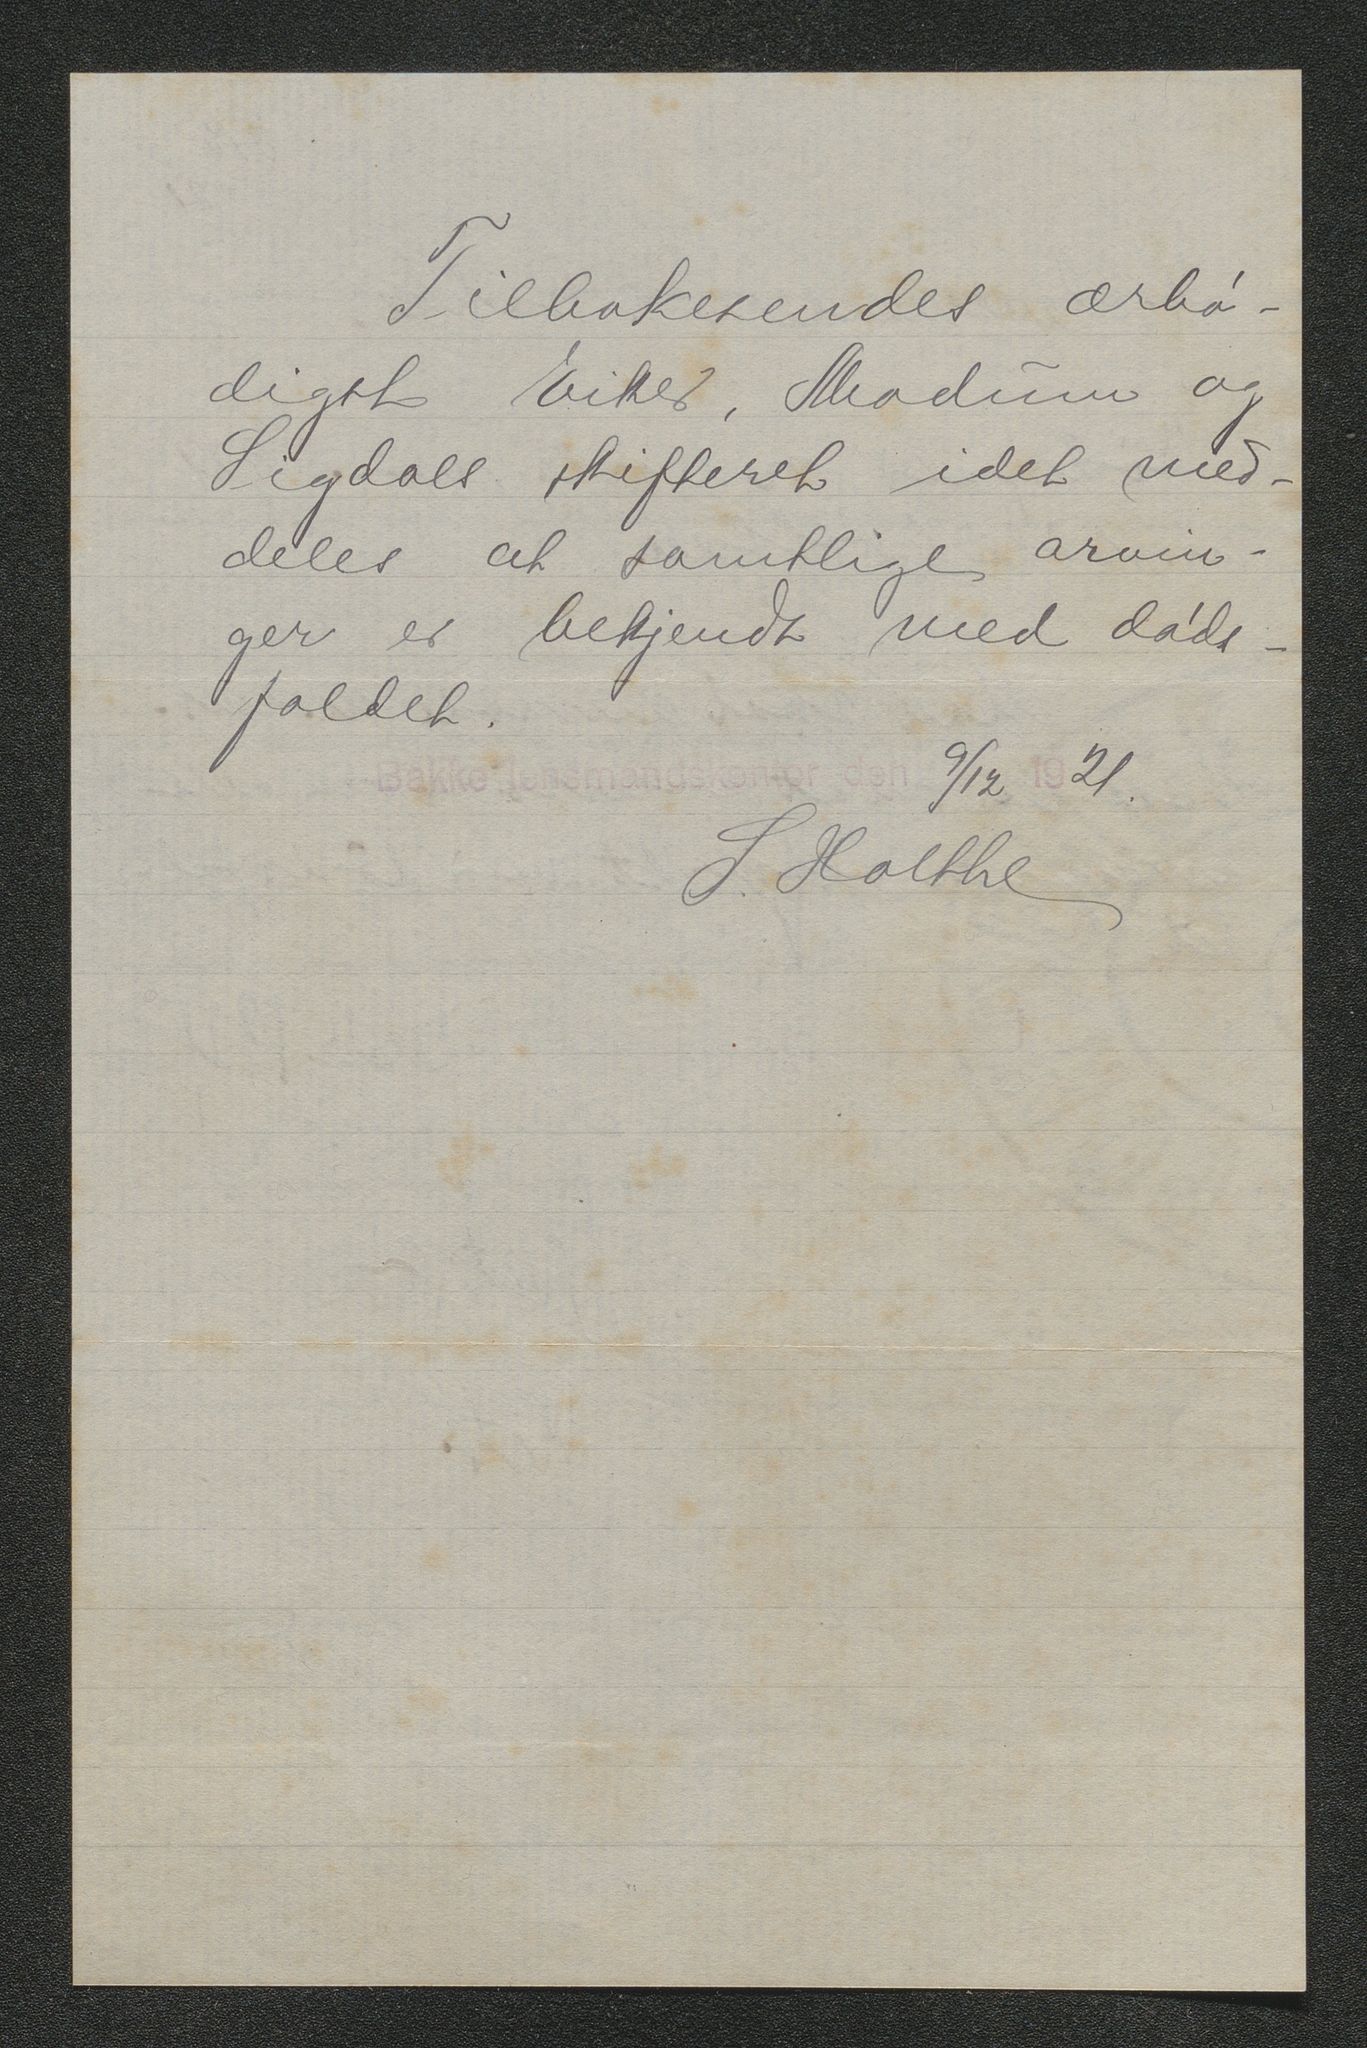 Tilbakesendes ærbó-
digst Eiker, Modum og
Sigdals skifteret idet med-
deles at samtlige arvin-
ger er bekjendt med dóds-
faldet.
Bakke lensmandskontor den 9/12 1921.
S. Holthe